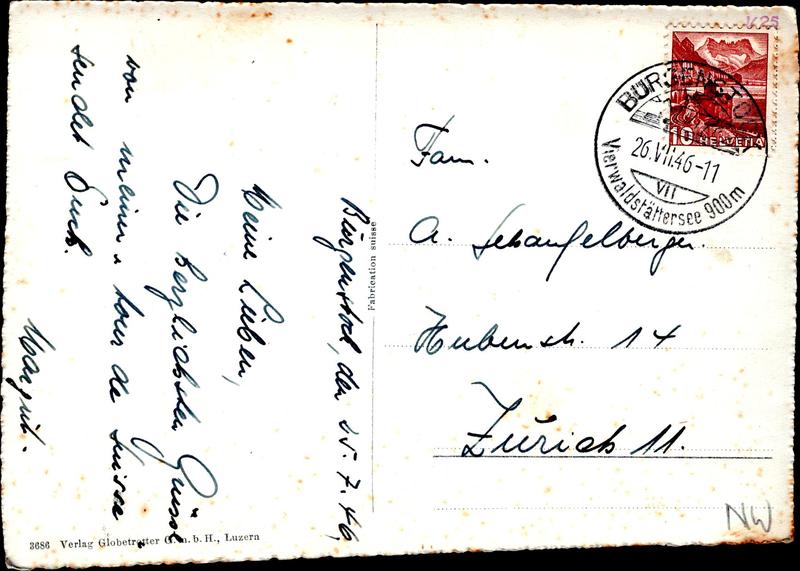 Bürgenstock, den 25.7.46,
Meine Lieben,
Die herzlichsten Grüsse
von meiner "tour de Suisse"
sendet Euch.
Margrit.
Fabrication suisse
3686 Verlag Globetrotter G.m.b.H., Luzern
Fam.
A. Schaufelberger.
Hubenstr. 14
Zürich 11.
10 HELVETIA
BÜRGENSTOCK
26.VII.46-11
VII
Vierwaldstättersee 900m
NW